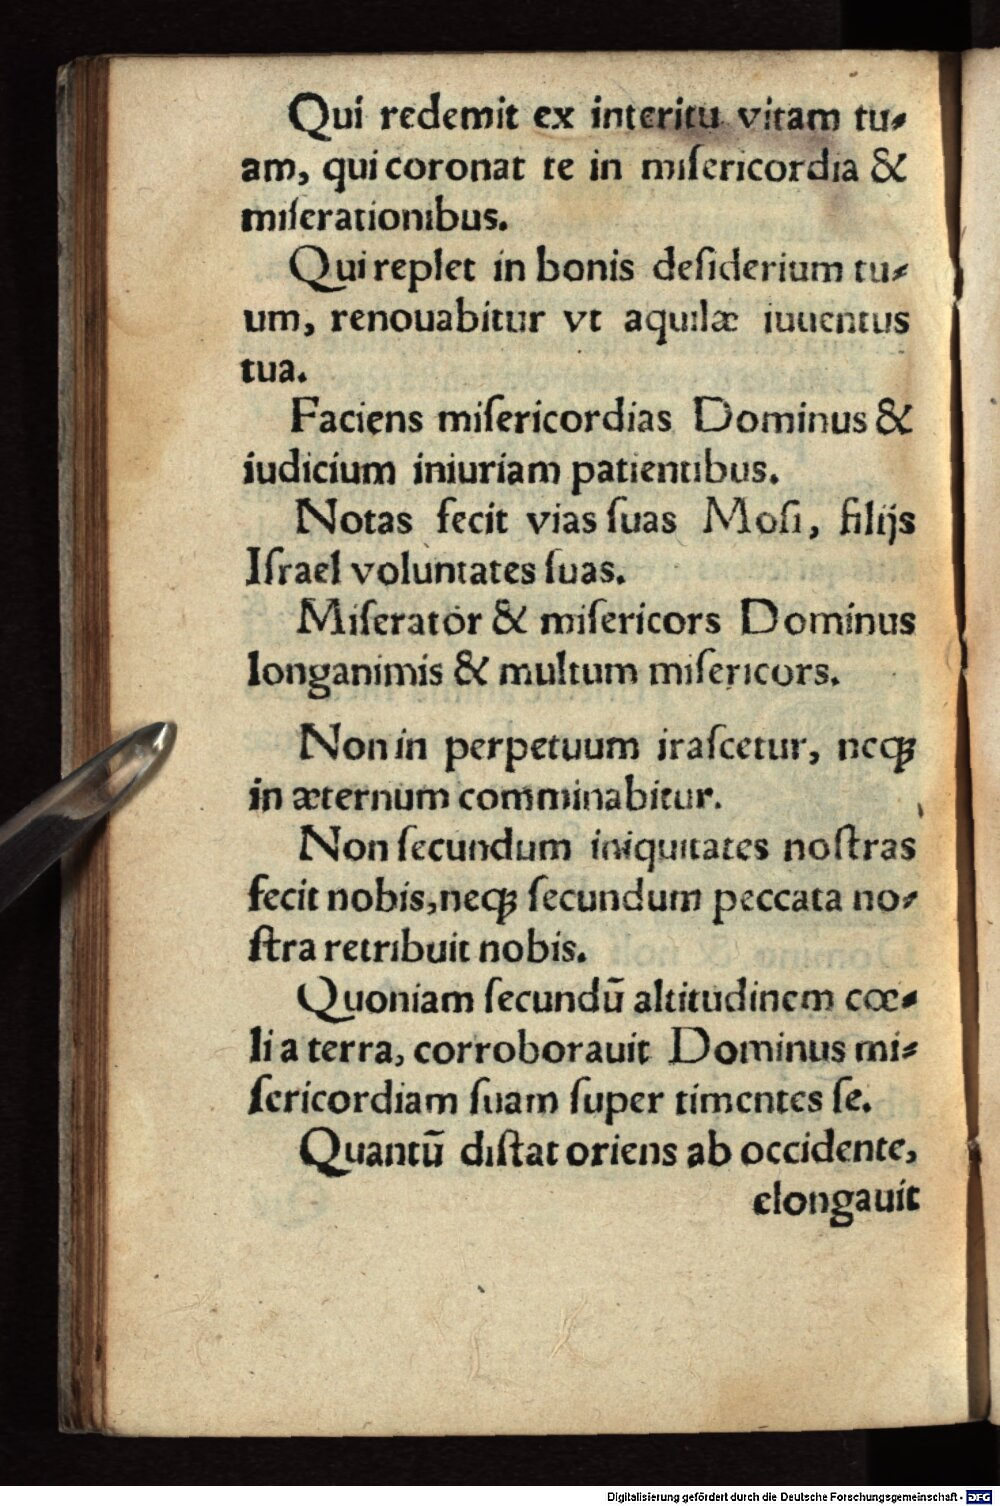 Qui redemit ex interitu vitam tu⸗
am, qui coronat te in miſericordia &
miſerationibus.
Qui replet in bonis deſiderium tu⸗
um, renouabitur vt aquilæ iuuentus
tua.
Faciens miſericordias Dominus &
iudicium iniuriam patientibus.
Notas fecit vias ſuas Moſi, filijs
Iſrael voluntates ſuas.
Miſerator & miſericors Dominus
longanimis & multum miſericors.
Non in perpetuum iraſcetur, neqꝫ
in æternum comminabitur.
Non ſecundum iniquitates noſtras
fecit nobis, neqꝫ ſecundum peccata no⸗
ſtra retribuit nobis.
Quoniam ſecundū altitudinem cœ⸗
li a terra, corroborauit Dominus mi⸗
ſericordiam ſuam ſuper timentes ſe.
Quantū diſtat oriens ab occidente,
elongauit
Digitalisierung gefördert durch die Deutsche Forschungsgemeinschaft - DFG